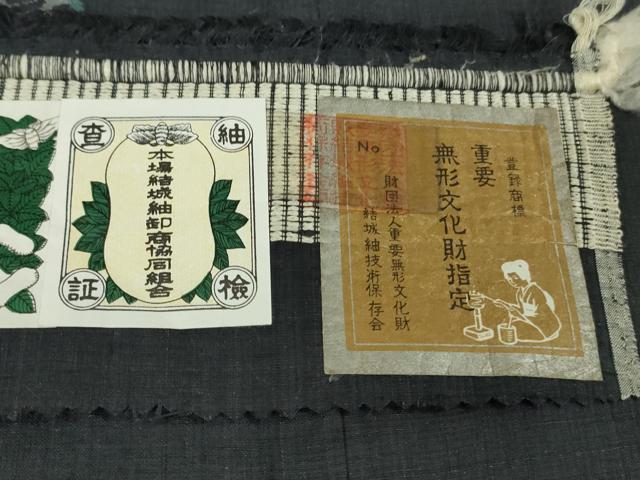 登録商標
重要
無形文化財指定
No.
財団法人重要無形文化財
結城紬技術保存会
紬
検
査
証
本場結城紬卸商協同組合